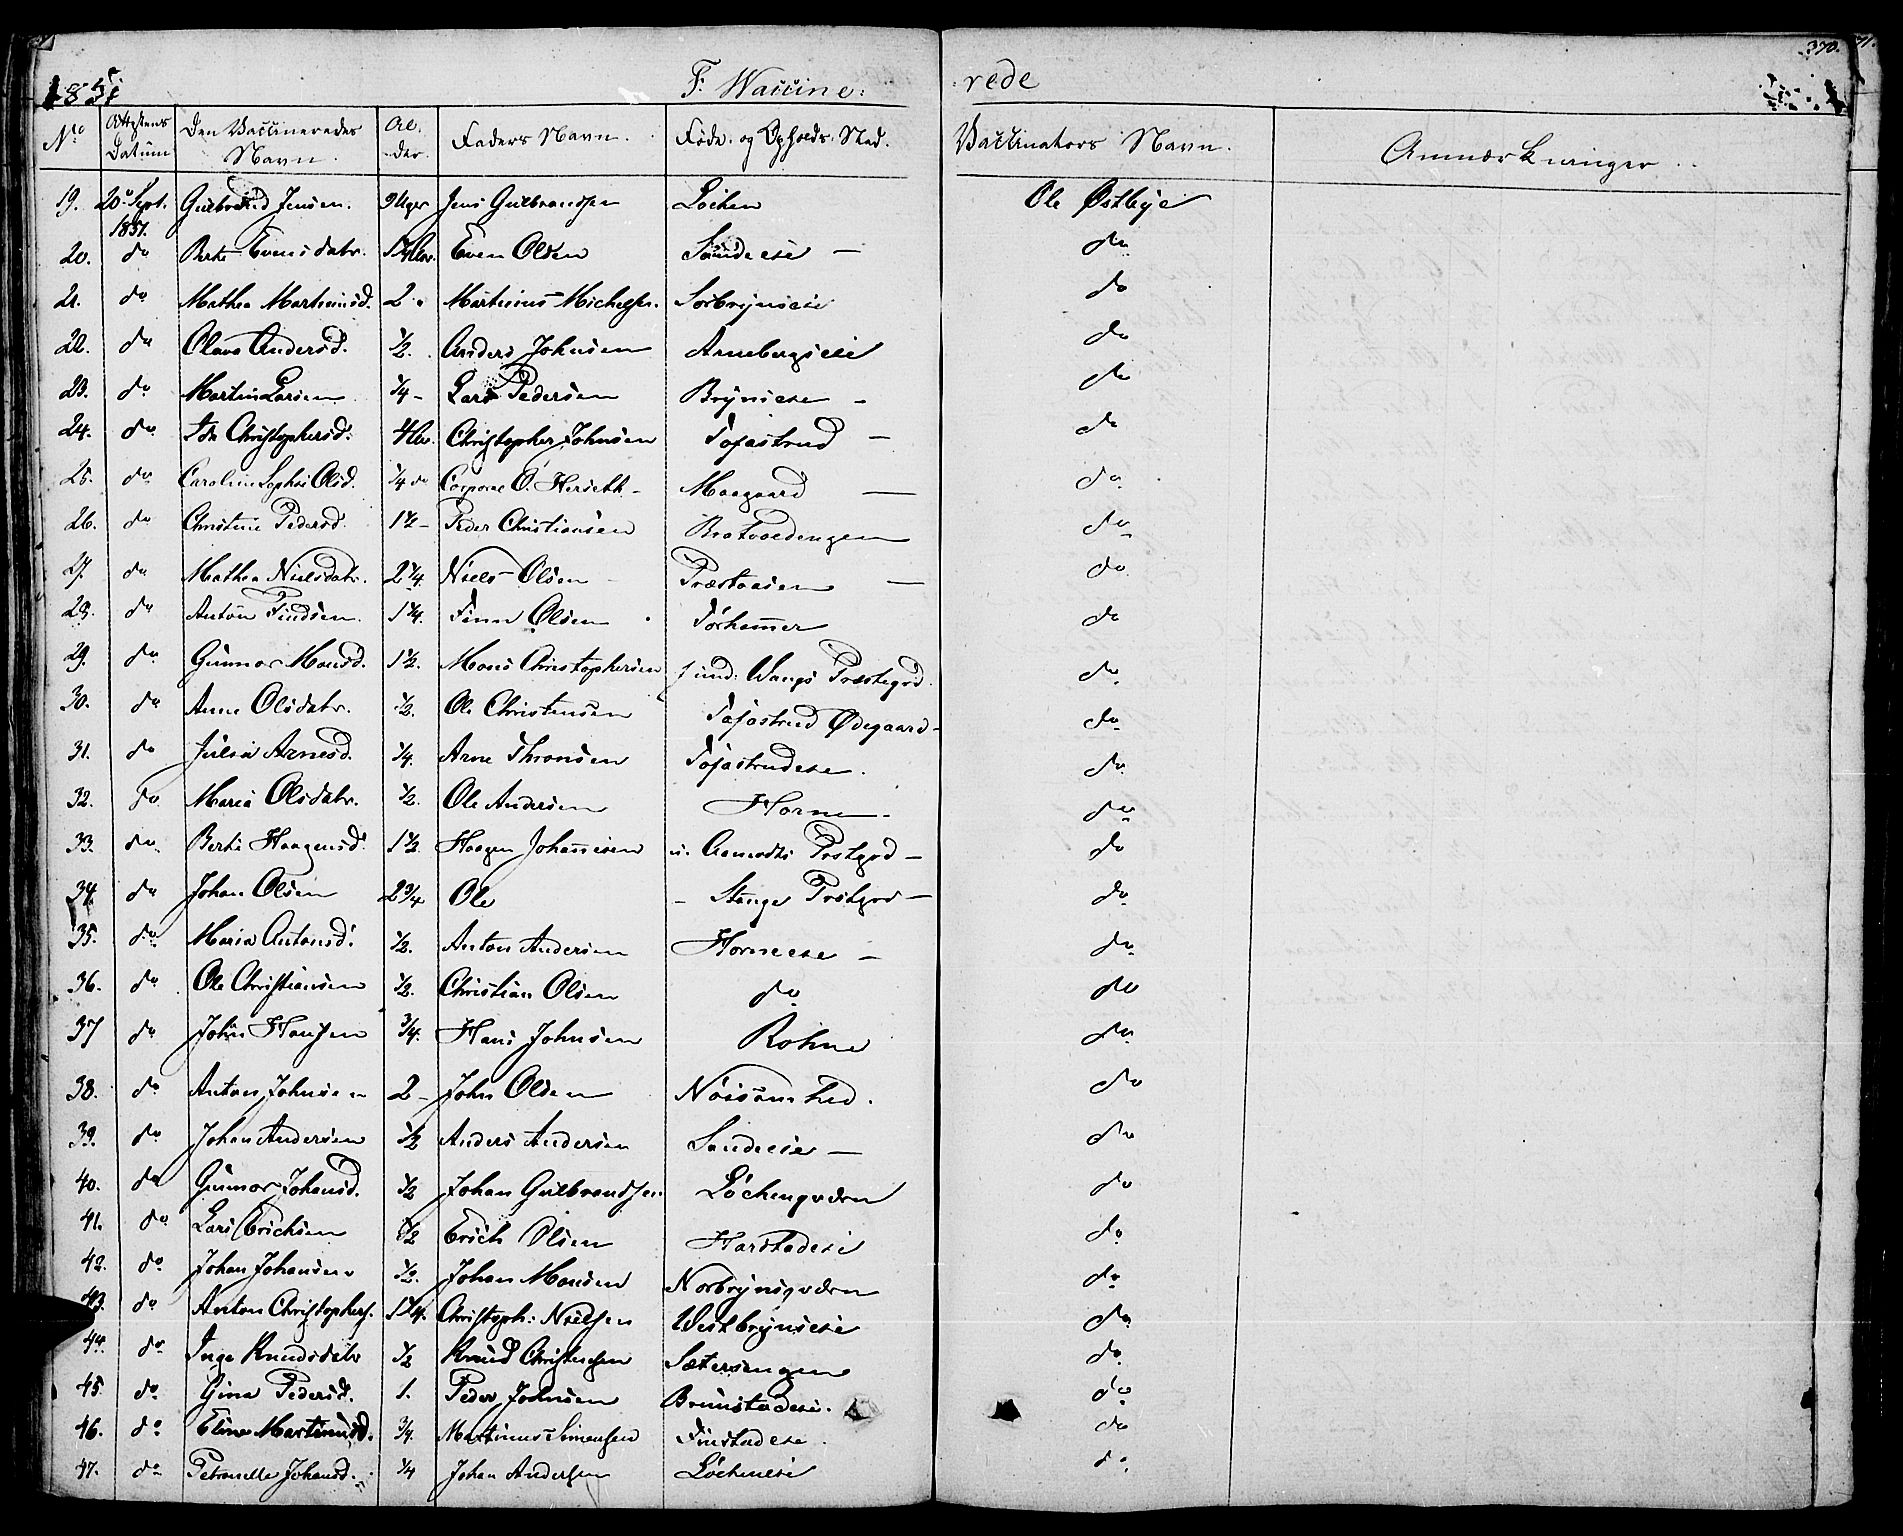 370.
1851 F. Vaccine: rede
No Attestens Datum Den Vaccineredes Navn. Al- der. Faders Navn. Føde- og Opholds-Sted. Vaccinators Navn. Anmærkninger.
19. 20de Sept. 1851. Gulbrand Jensen. 9 Uger Jens Gulbrandsen Løiken Ole Østbye
20. do Berte Evensdatr. Even Olsen Sandeeie — do
21. do Mathea Martinusd. 2 Martinus Michelsen. Sørbryniseie do
22. do Olava Andersd. 1/2. Anders Johnsen Arnebergseie do
23. do Martin Larsen 1/4 – Lars Pedersen Bryniseie – do
24. do Ida Christophersd. Christopher Johnsen Tofastrud — do
25. do Caroline Sophie Olsd. 1/4 do Corporal O. Herseth – Maagaard — do
26. do Christine Pedersd. 1 1/2 – Peder Christiansen Bratvoldengen do
27. do Mathea Nielsdatr. 2 1/4. Niels Olsen Præstaasen — do
28. do Anton Findsen. 1 1/4. Finn Olsen Torhammer do
29. do Gunnor Monsd. 1 1/2. Mons Christophersen f und: Wangs Præstegrd. do
30. do Anne Olsdatr. 1/2. Ole Christensen Tofastrud Ødegaard – do
31. do Julia Arnesd. 1/4. Arne Thronsen Tofastrudeie. do
32. do Maria Olsdatr. 1/2. Ole Andersen Horne – do
33. do Berte Haagensd. 1 1/2 Haagen Johannesen u. Aamodts Prstgrd – do
34. do Johan Olsen 2 3/4 Ole – Stange Prstgrd – do
35. do Maria Antonsd. 1/2. Anton Andersen Horneeie – do
36. do Ole Christiansen 1/2. Christian Olsen do do
37 do John Hansen 3/4. Hans Johnsen Rohne do
38. do Anton Johnsen 2 – John Olsen Nøisomhed. do
39. do Johan Andersen 1/2 Anders Andersen Sandeeie — do
40. do Gunnor Johansd. 1/2 Johan Gulbrandsen Løchenqværn do
41. do Lars Erichsen 1/2 Erich Olsen Harstadeie do
42. do Johan Johansen 1/2. Johan Monsen Norbrynsqværn do
43. do Anton Christophers. 1 1/4. Christoph: Nielsen Westbryniseie do
44. do Inge Knudsdatr 1/2 Knud Christensen Sætersengen do
45. do Gina Pedersd. 1. Peder Johnsen Brunstadeie. do
46. do Eline Martinusd. 3/4. Martinus Simensen Finstadeie. do
47. do Petronelle Johansd. 1/4 Johan Andersen Løcheneie do